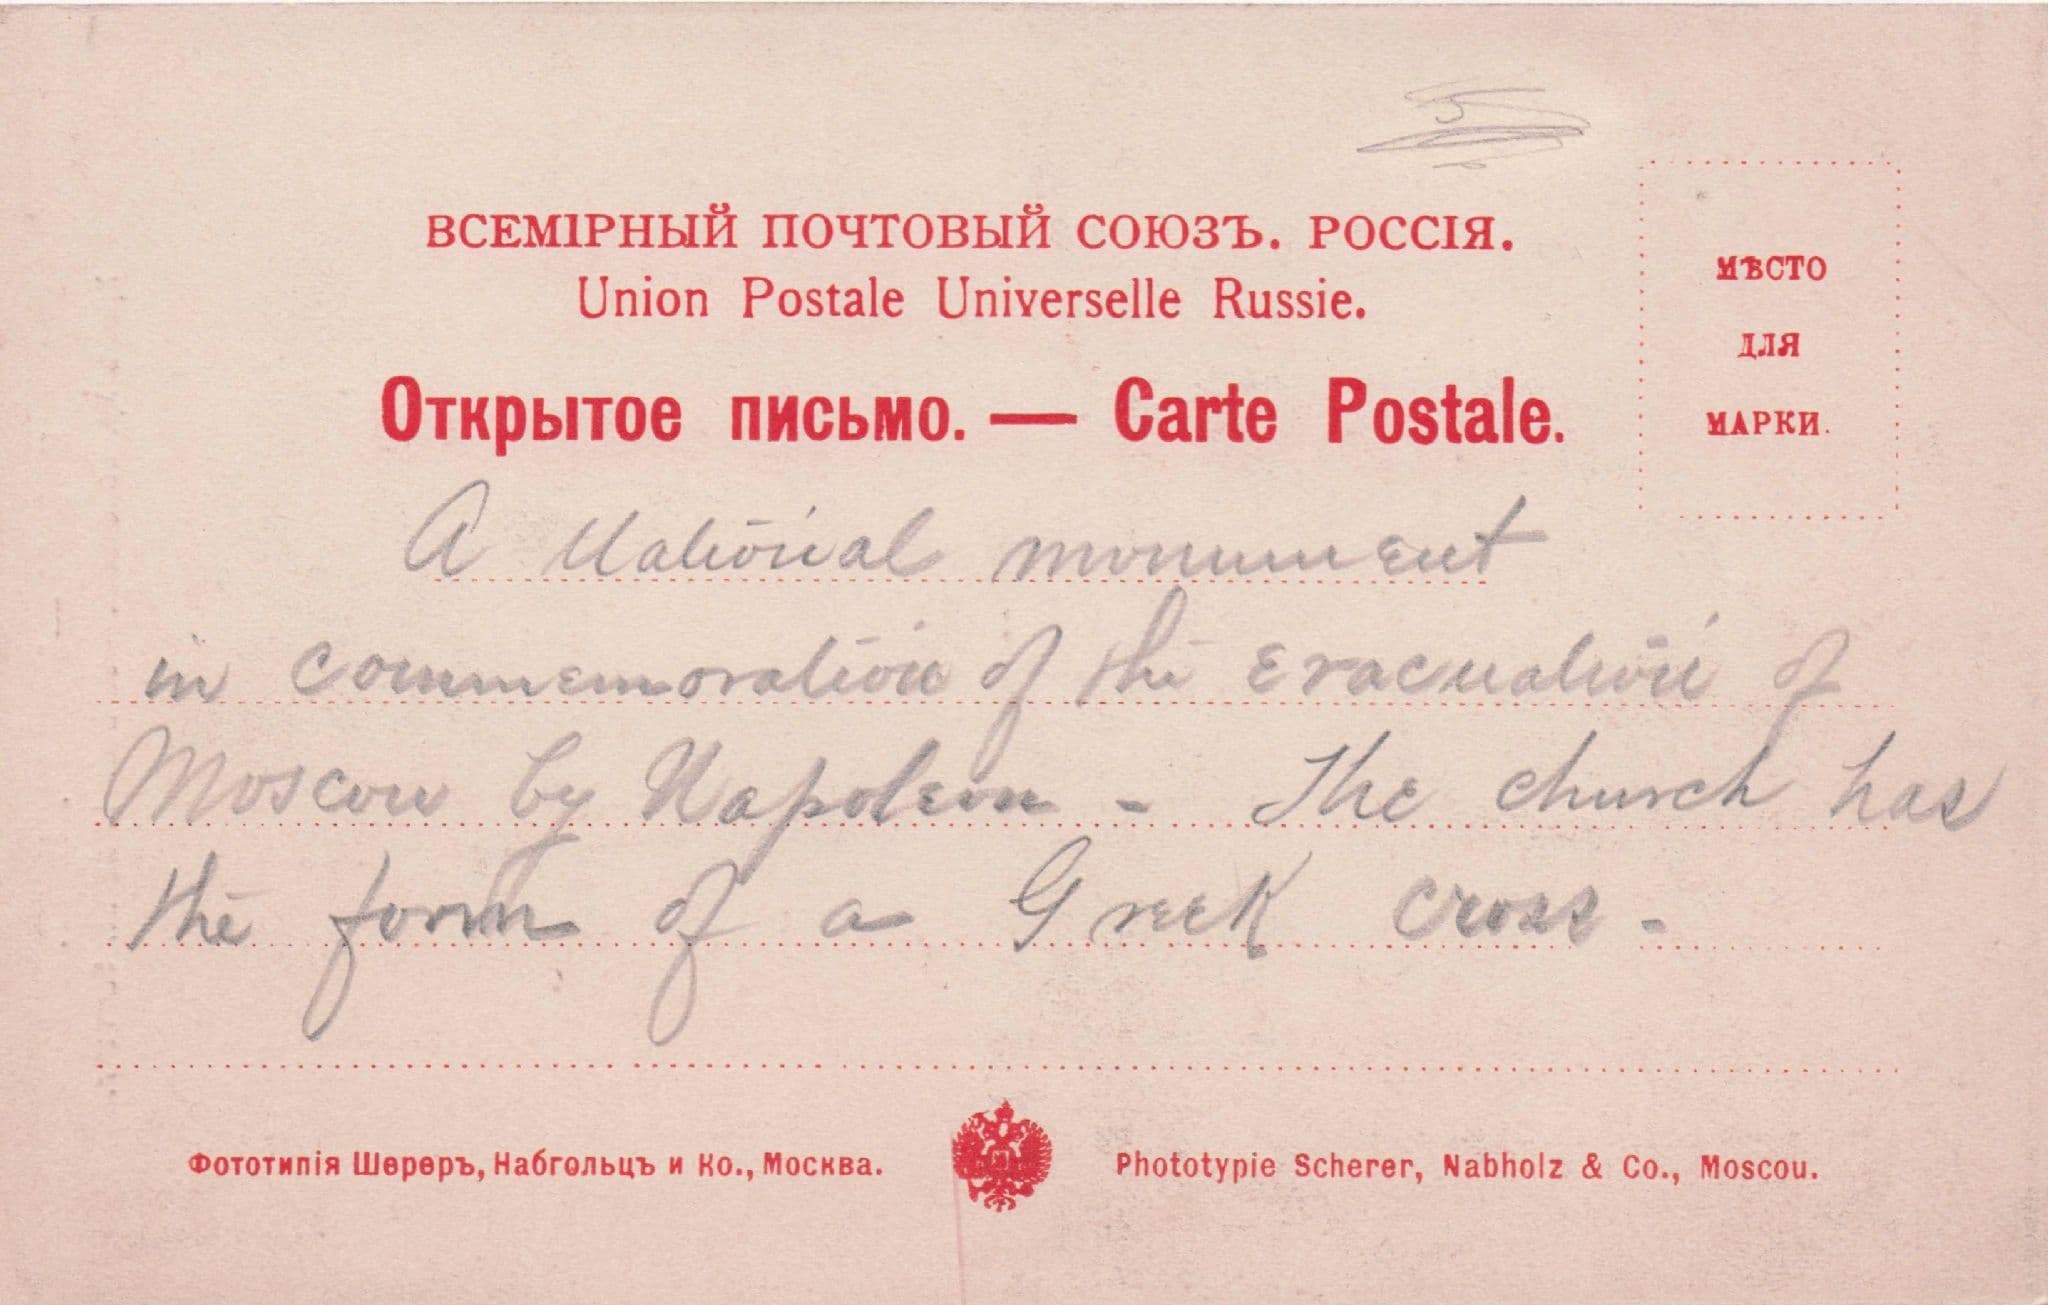 ВСЕМIРНЫЙ ПОЧТОВЫЙ СОЮЗЪ. РОССIЯ.
Union Postale Universelle Russie.
Открытое письмо. — Carte Postale.
МѢСТО
ДЛЯ
МАРКИ.
A National monument
in commemoration of the Evacuation of
Moscow by Napoleon - The church has
the form of a Greek cross -
Фототипія Шереръ, Набгольцъ и Ко., Москва.
Phototypie Scherer, Nabholz & Co., Moscou.